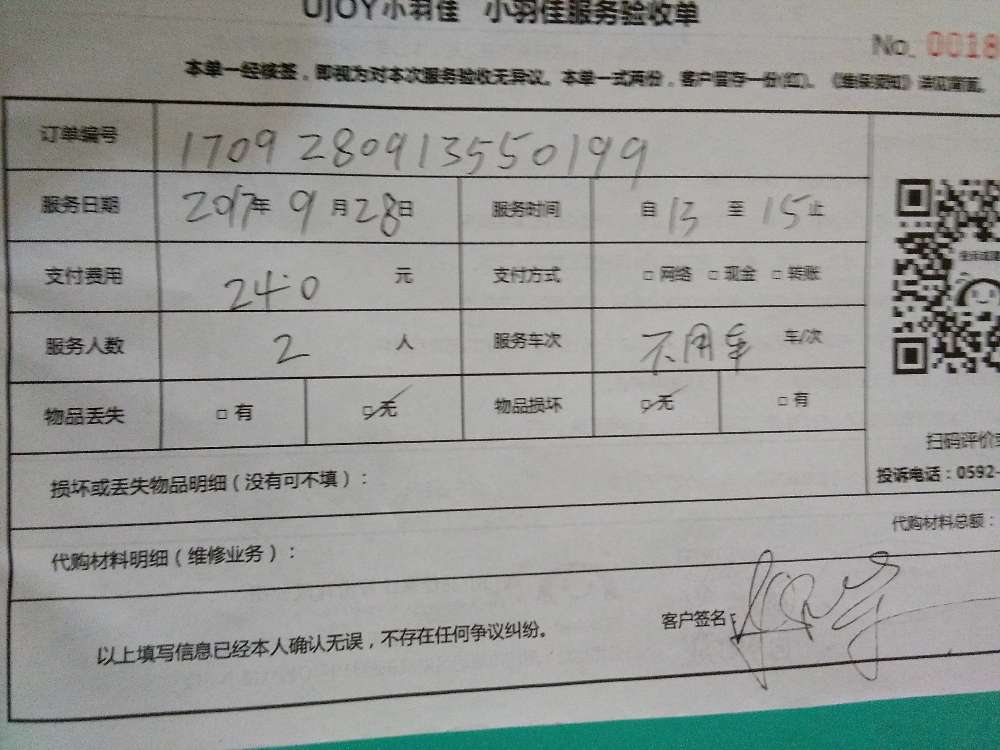 UJOY小羽佳 小羽佳服务验收单
No. 0018
本单一经核签，即视为对本次服务验收无异议。本单一式两份，客户留存一份(红)。《维保须知》详见背面。
订单编号 170928091355019９
服务日期 2017年 9月28日 服务时间 自13 至15止
支付费用 240 元 支付方式 □网络 □现金 □转账
服务人数 2 人 服务车次 不用车 车/次
物品丢失 □有 ☑无 物品损坏 ☑无 □有
扫码评价
损坏或丢失物品明细（没有可不填）：
投诉电话：0592-
代购材料明细（维修业务）：
代购材料总额：
以上填写信息已经本人确认无误，不存在任何争议纠纷。
客户签名：